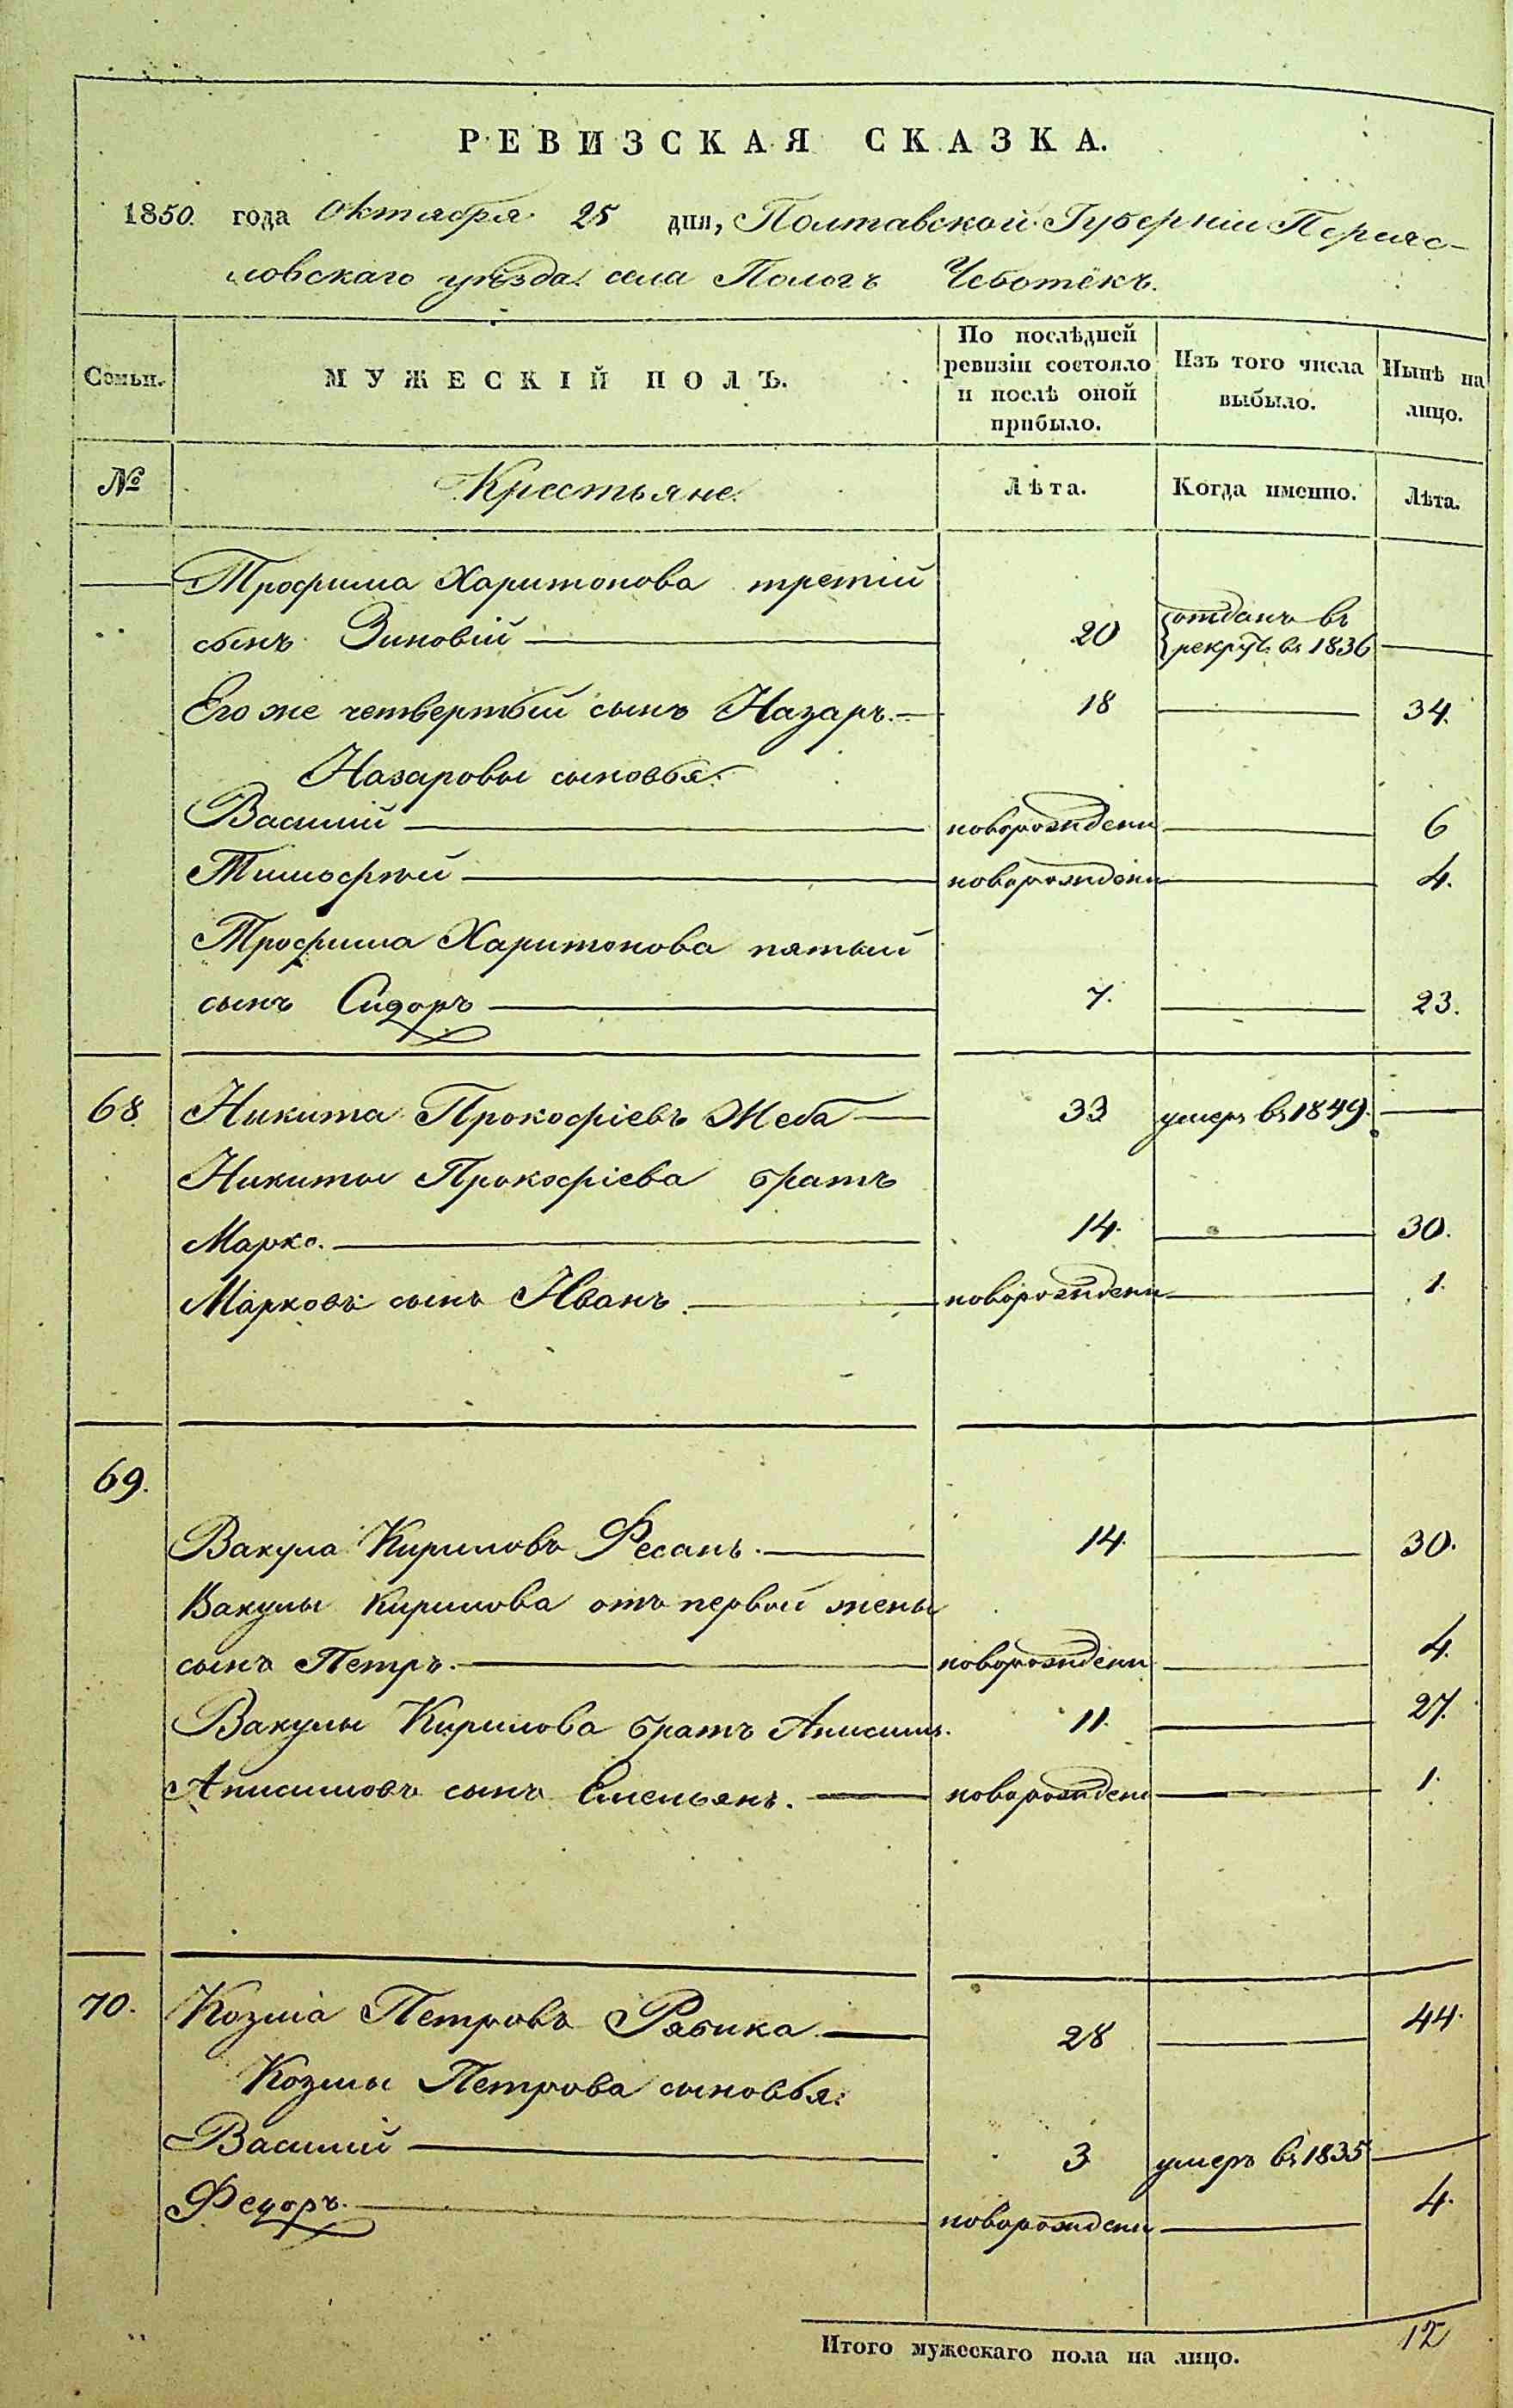 РЕВИЗСКАЯ СКАЗКА.
1850. года Октября 25 дня, Полтавской Губерніи Переяс-
ловскаго уѣзда села Пологъ Чоботекъ.
Семьи. МУЖЕСКІЙ ПОЛЪ. По послѣдней ревизіи состояло и послѣ оной прибыло. Изъ того числа выбыло. Нынѣ на лицо.
№ Крестьяне. Лѣта. Когда именно. Лѣта.
Трофима Харитонова третій
сынъ Зиновій 20 отданъ въ рекрут. въ 1836
Его же четвертый сынъ Назаръ. 18 34.
Назаровы сыновья:
Василий новорожденн 6
Тимофѣй новорожденн 4.
Трофима Харитонова пятый
сынъ Сидоръ 7. 23.
68. Никита Прокофіевъ Жеба 33 умеръ въ 1849.
Никиты Прокофіева братъ
Марко. 14. 30.
Марковъ сынъ Иванъ. новорожденн 1.
69.
Вакула Кириловъ Фесанъ. 14. 30.
Вакулы Кирилова отъ первой жены
сынъ Петръ. новорожденн 4.
Вакулы Кирилова братъ Анисимъ. 11. 27.
Анисимовъ сынъ Емельянъ. новорожден 1.
70. Козма Петровъ Рябика 28 44.
Козмы Петрова сыновья:
Василий 3 умеръ въ 1835
Федоръ. новорожденн 4.
Итого мужескаго пола на лицо. 12